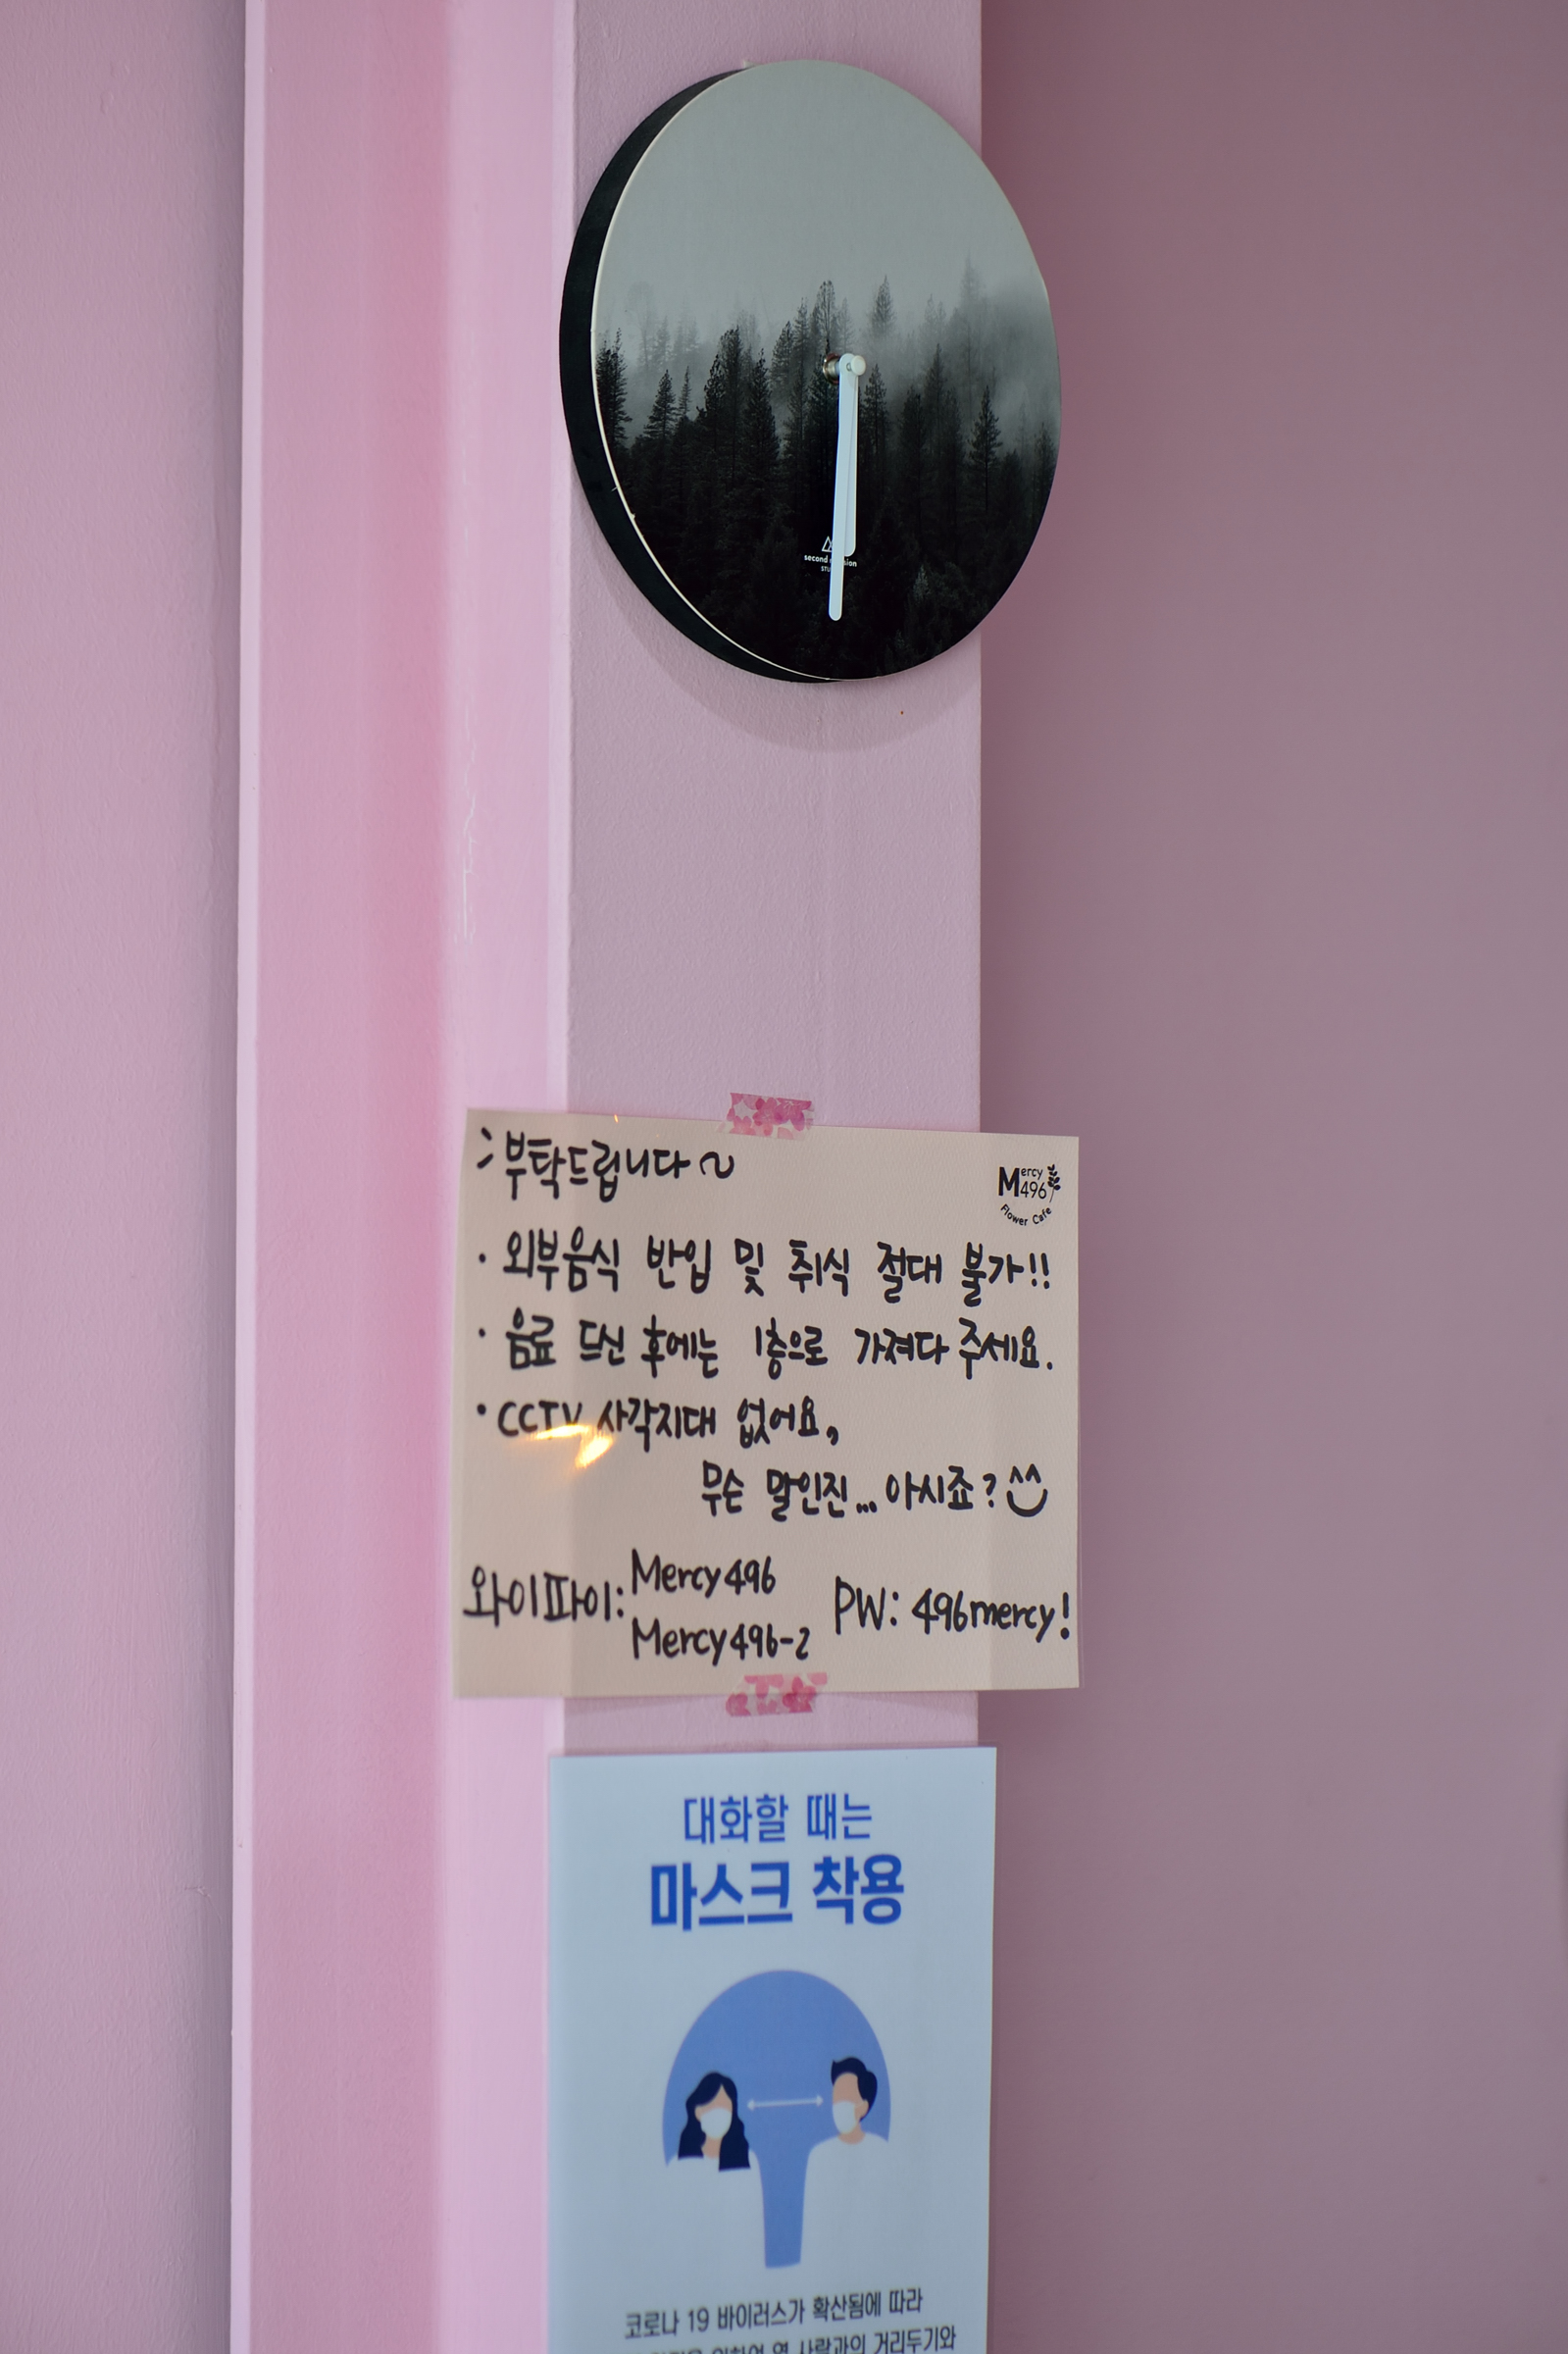 second
STU
부탁드립니다~
Mercy
496
Flower Cafe
· 외부음식 반입 및 취식 절대 불가!!
· 음료 드신 후에는 1층으로 가져다 주세요.
· CCTV 사각지대 없어요,
무슨 말인진... 아시죠? ^^
와이파이: Mercy496
Mercy496-2
PW: 496mercy!
대화할 때는
마스크 착용
코로나 19 바이러스가 확산됨에 따라
위하여 옆 사람과의 거리두기와